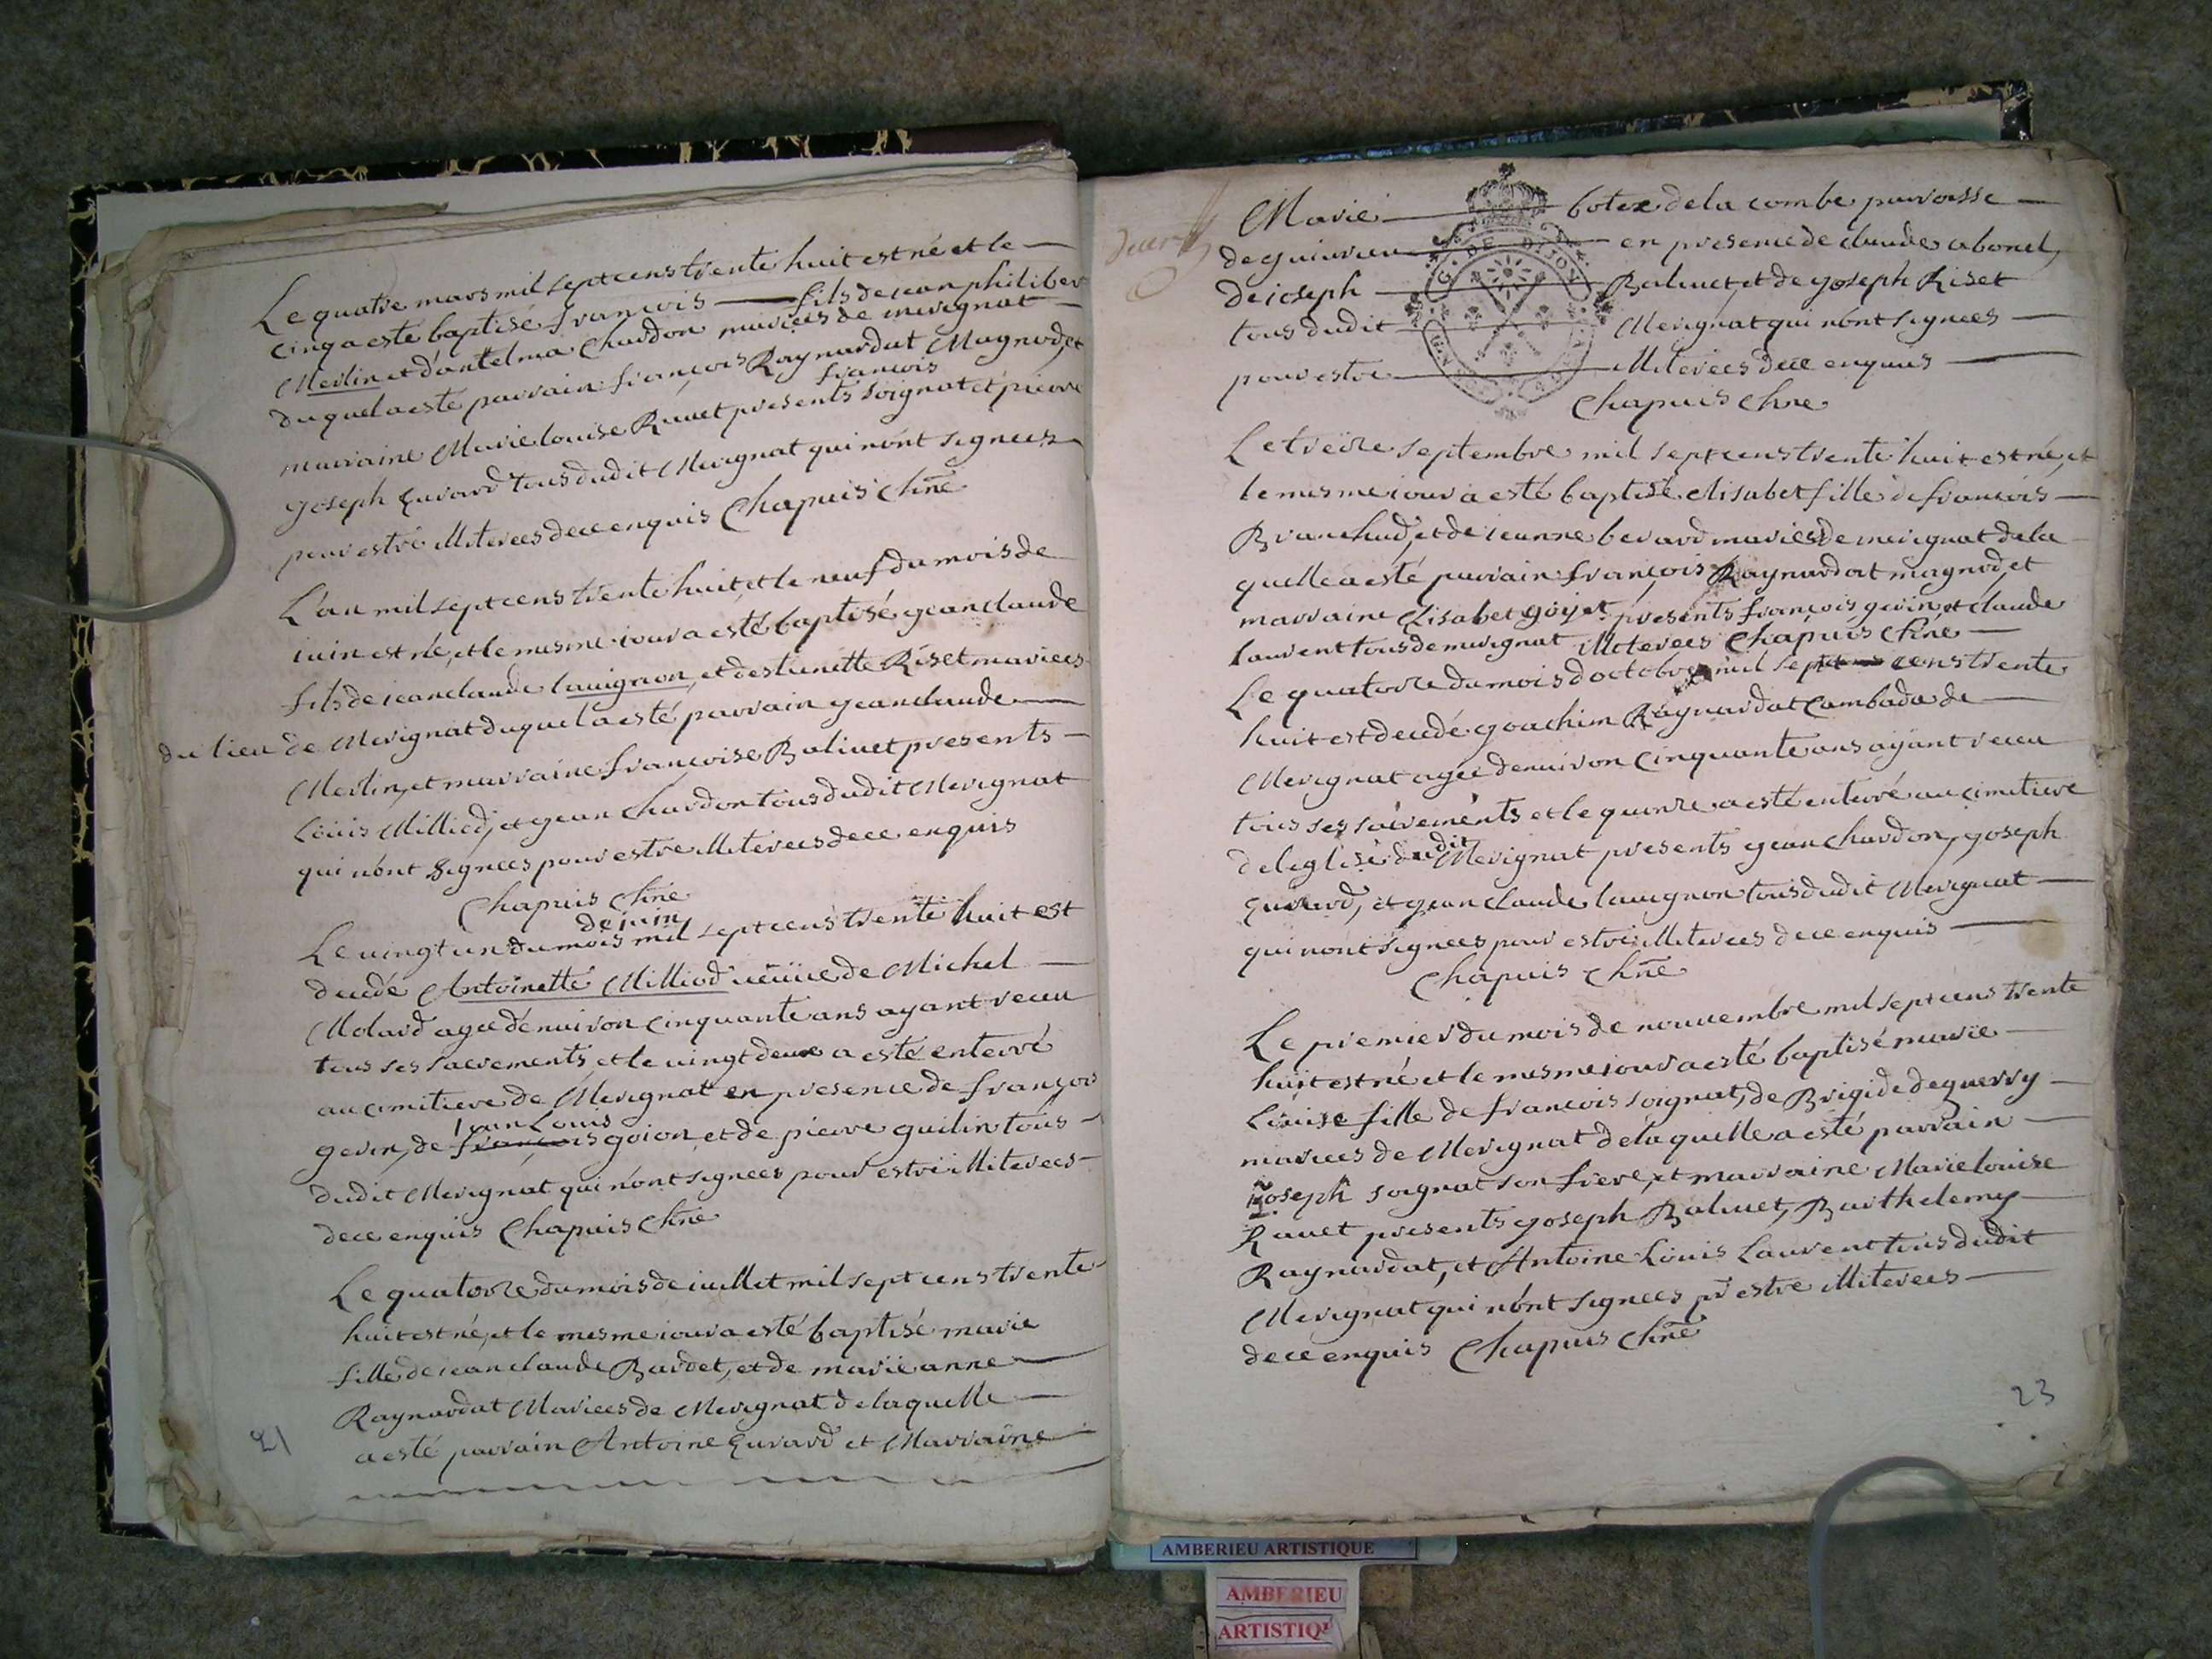 Le quatre mars mil sept cens trente huit est né et le
cinq a esté baptisé francois fils de jean philiber
Merlin et d'antelma Chardon mariees de merignat
duquel a esté parrain francois Raynardat Magnod, et
francois
marraine Marie louise Ravet presents soignat et pierre
joseph Euvard tous dudit Merignat qui n'ont signees
pour estre illiterees de ce enquis Chapuis Chne
L'an mil sept cens trente huit, et le neuf du mois de
iuin est né, et le mesme iour a esté baptisé jean claude
fils de iean claude lauignon, et d'estiennette Riset mariees
du lieu de Merignat duquel a esté parrain jean claude
Merlin, et marraine francoise Balivet presents
Louis Milliod, et jean Chardon tous dudit Merignat
qui n'ont signees pour estre illiterees de ce enquis
Chapuis Chne
de juin
Le vingt un du mois mil sept cens trente huit est
decedé Antoinette Milliod veuve de Michel
Molard agee d'enuiron cinquante ans ayant receu
tous ses sacrements, et le vingt deux a esté enterré
au cimitiere de Merignat en presence de françois
jean Louis
gerin, de francois goion, et de pierre guilin tous
dudit Merignat qui n'ont signees pour estre illiterees
de ce enquis Chapuis Chne
Le quatorze du mois de iuillet mil sept cens trente
huit est né, et le mesme iour a esté baptisé marie
fille de iean claude Bardet, et de marie anne
Raynardat Mariees de Merignat de laquelle
a esté parrain Antoine Euvard et Marraine
21
Marie botex de la combe parroisse
de en presence de claude abonel,
de ioseph Balivet, et de joseph Riset
tous dudit Merignat qui n'ont signees
pour estre illiterees de ce enquis
G. DE DIJON
Chapuis Chne
Le treize septembre mil sept cens trente huit est né, et
le mesme iour a esté baptisé elisabet fille de francois
Branchud, et de ieanne berard mariés de merignat de la
quelle a esté parrain françois Raynardat magnod, et
marraine Elisabet goyet presents françois gerin, et claude
laurent tous de merignat illiterees Chapuis Chne
Le quatorze du mois d'octobre mil sept cens trente
huit est decedé joachim Raynardat Cambada de
Merignat agee d'enuiron cinquante ans ayant receu
tous ses sacrements et le quinze a esté enterré au cimitiere
de l'eglise dudit Merignat presents jean Chardon, joseph
Euvard, et jean claude lauignon tous dudit Merignat
qui n'ont signees pour estre illiterees de ce enquis
Chapuis Chne
Le premier du mois de novembre mil sept cens trente
huit est né et le mesme iour a esté baptisé marie
Louise fille de francois soignat, de Brigide deguerry
mariees de Merignat de laquelle a esté parrain
joseph soignat son frere, et marraine Marie louise
Ravet presents joseph Balivet, Barthelemy
Raynardat, et Antoine Louis Laurent tous dudit
Merignat qui n'ont signees pr estre illiterees
de ce enquis Chapuis Chne
23
AMBERIEU ARTISTIQUE
AMBERIEU
ARTISTIQ